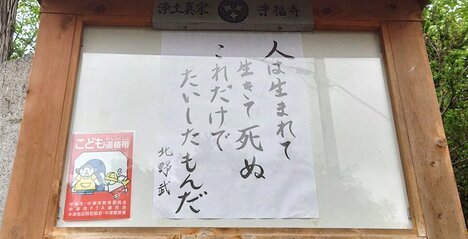 浄土真宗 浄福寺
人は生まれて
生きて死ぬ
これだけで
たいしたもんだ
北野武
こども連絡所